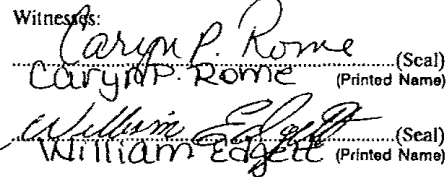 Witnesses:
Caryn P. Rome
(Seal)
Caryn P. Rome
(Printed Name)
William Edgett
(Seal)
William Edgett
(Printed Name)